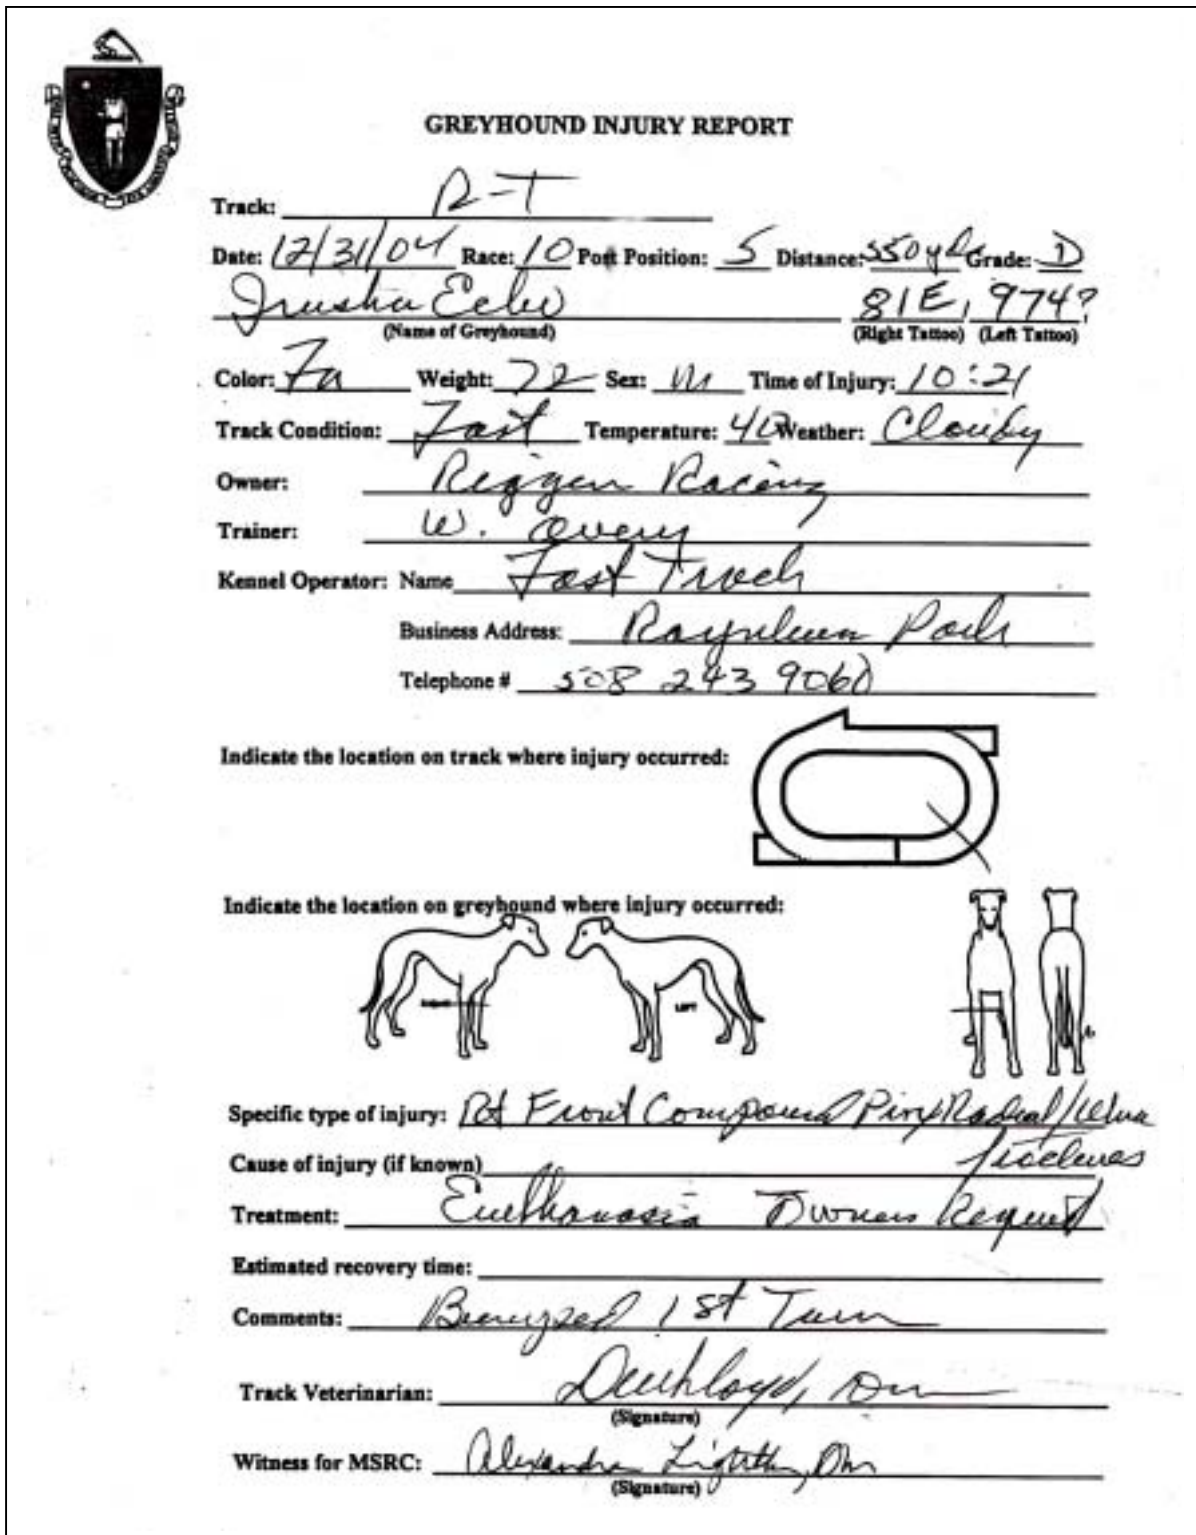 GREYHOUND INJURY REPORT
Track: R-T
Date: 12/31/04 Race: 10 Post Position: 5 Distance: 550 yds Grade: D
Echo 81E, 974?
(Name of Greyhound) (Right Tattoo) (Left Tattoo)
Color: Fa Weight: 72 Sex: M Time of Injury: 10:21
Track Condition: Fast Temperature: 40 Weather: Cloudy
Owner: Racing
Trainer: W. Avery
Kennel Operator: Name Fast Track
Business Address: Raynham Park
Telephone # 508 243 9060
Indicate the location on track where injury occurred:
Indicate the location on greyhound where injury occurred:
RIGHT LEFT
Specific type of injury: Rt Front Compound Radial/Ulna
fractures
Cause of injury (if known)
Treatment: Euthanasia Owners Request
Estimated recovery time:
Comments: Bumped 1st Turn
Track Veterinarian:
(Signature)
Witness for MSRC: Alexandra
(Signature)